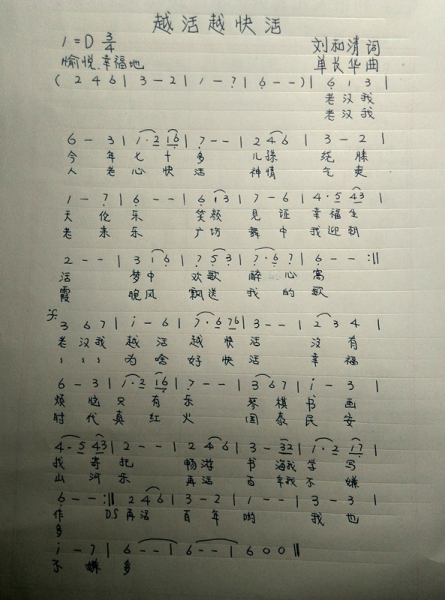 越活越快活
1=D 3/4 刘和清 词
愉悦.幸福地 单长华 曲
( 2 4 6 | 3 - 2 | 1 - 7 | 6 - - ) | 6 1 3 |
老汉我
老汉我
6 - 3 | 1·2 16 | 7 - - | 2 4 6 | 3 - 2 |
今 年 七 十 多 儿孙 绕 膝
人 老 心 快 活 神情 气 爽
1 - 7 | 6 - - | 6 1 3 | 7 - 6 | 4·5 43 |
天 伦 乐 笑貌 见 证 幸 福 生
老 来 乐 广场 舞 中 我 迎 朝
2 - - | 3 1 6 | 7 5 3 | 7·6 7 | 6 - - :||
活 梦中 欢歌 心 窝
霞 晚风 飘送 我 的 歌
3 6 7 | i - 6 | 7·6 76 | 3 - - | 2 3 4 |
老汉我 越 活 越 快 活 没 有
为 啥 好 快 活 幸 福
6 - 3 | 1·2 16 | 7 - - | 3 6 7 | i - 3 |
烦 恼 只 有 乐 琴 棋 书 画
时 代 真 红 火 国 泰 民 安
4·5 43 | 2 - - | 2 4 6 | 3 - 32 | 1·2 17 |
我 寄 托 畅游 书 海我 学 写
山 河 乐 再活 百 年我 不 嫌
6 - - :|| 2 4 6 | 3 - 2 | 1 - - | 3 - 3 |
作 DS 再活 百 年 哟 我 也
多
i - 7 | 6 - - | 6 - - | 6 0 0 ||
不 嫌 多